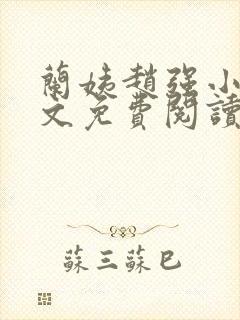 蘭姨趙強小
文免費閱讀
蘇三蘇巳